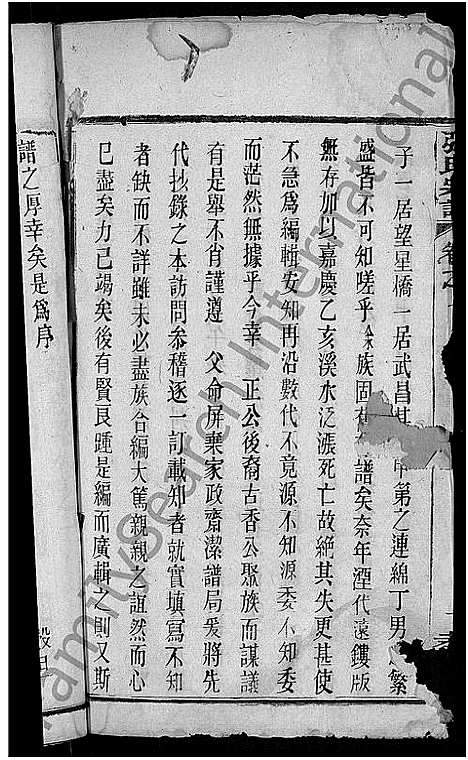 張氏宗譜 卷之
子一居望星橋一居武昌其 甲第之連綿丁男 繁
盛皆不可知嗟乎 族固有 譜矣奈年湮代遠鏤版
無存加以嘉慶乙亥溪水泛漲死亡故絕其失更甚使
不急爲編輯安知再沿數代不竟源不知源委不知委
而茫然無據乎今幸 正公後裔古香公聚族而謀議
有是舉不肖謹遵 父命屏棄家政齋潔譜局爰將先
代抄錄之本訪問參稽逐一訂載知者就實填寫不知
者缺而不詳雖未必盡族合編大篤親親之誼然而心
已盡矣力已竭矣後有賢良踵是編而廣輯之則又斯
譜之厚幸矣是爲序
FamilySearch International